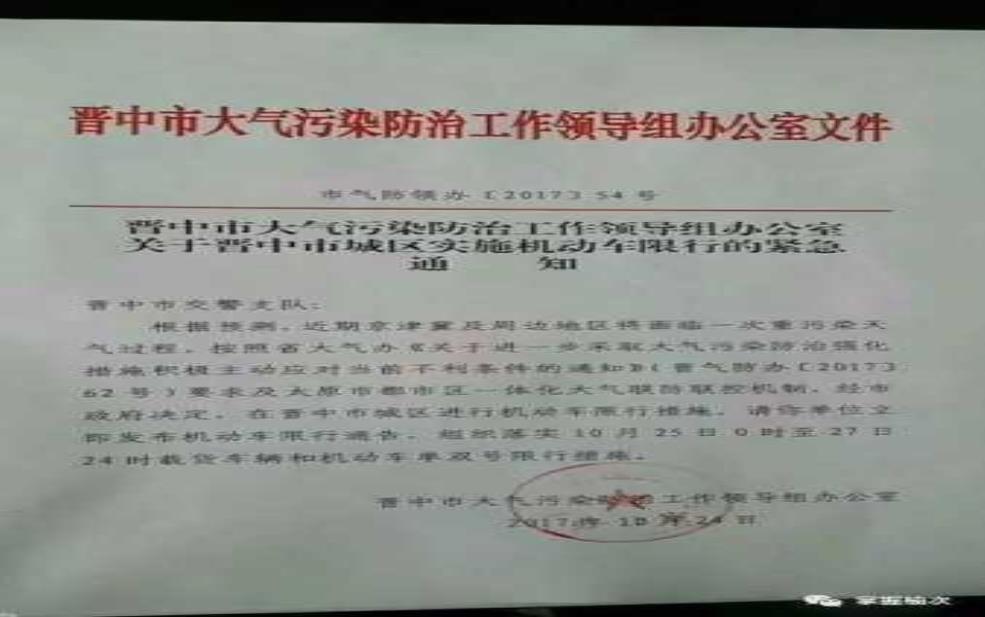 晋中市大气污染防治工作领导组办公室文件
市气防领办〔2017〕54号
晋中市大气污染防治工作领导组办公室
关于晋中市城区实施机动车限行的紧急
通 知
晋中市交警支队：
根据预测，近期京津冀及周边地区将面临一次重污染天
气过程，按照省大气办《关于进一步采取大气污染防治强化
措施积极主动应对当前不利条件的通知》（晋气防办〔2017〕
62号）要求及太原市都市区一体化大气联防联控机制，经市
政府决定，在晋中市城区进行机动车限行措施，请你单位立
即发布机动车限行通告，组织落实10月25日0时至27日
24时载货车辆和机动车单双号限行措施。
晋中市大气污染防治工作领导组办公室
2017年10月24日
掌握榆次